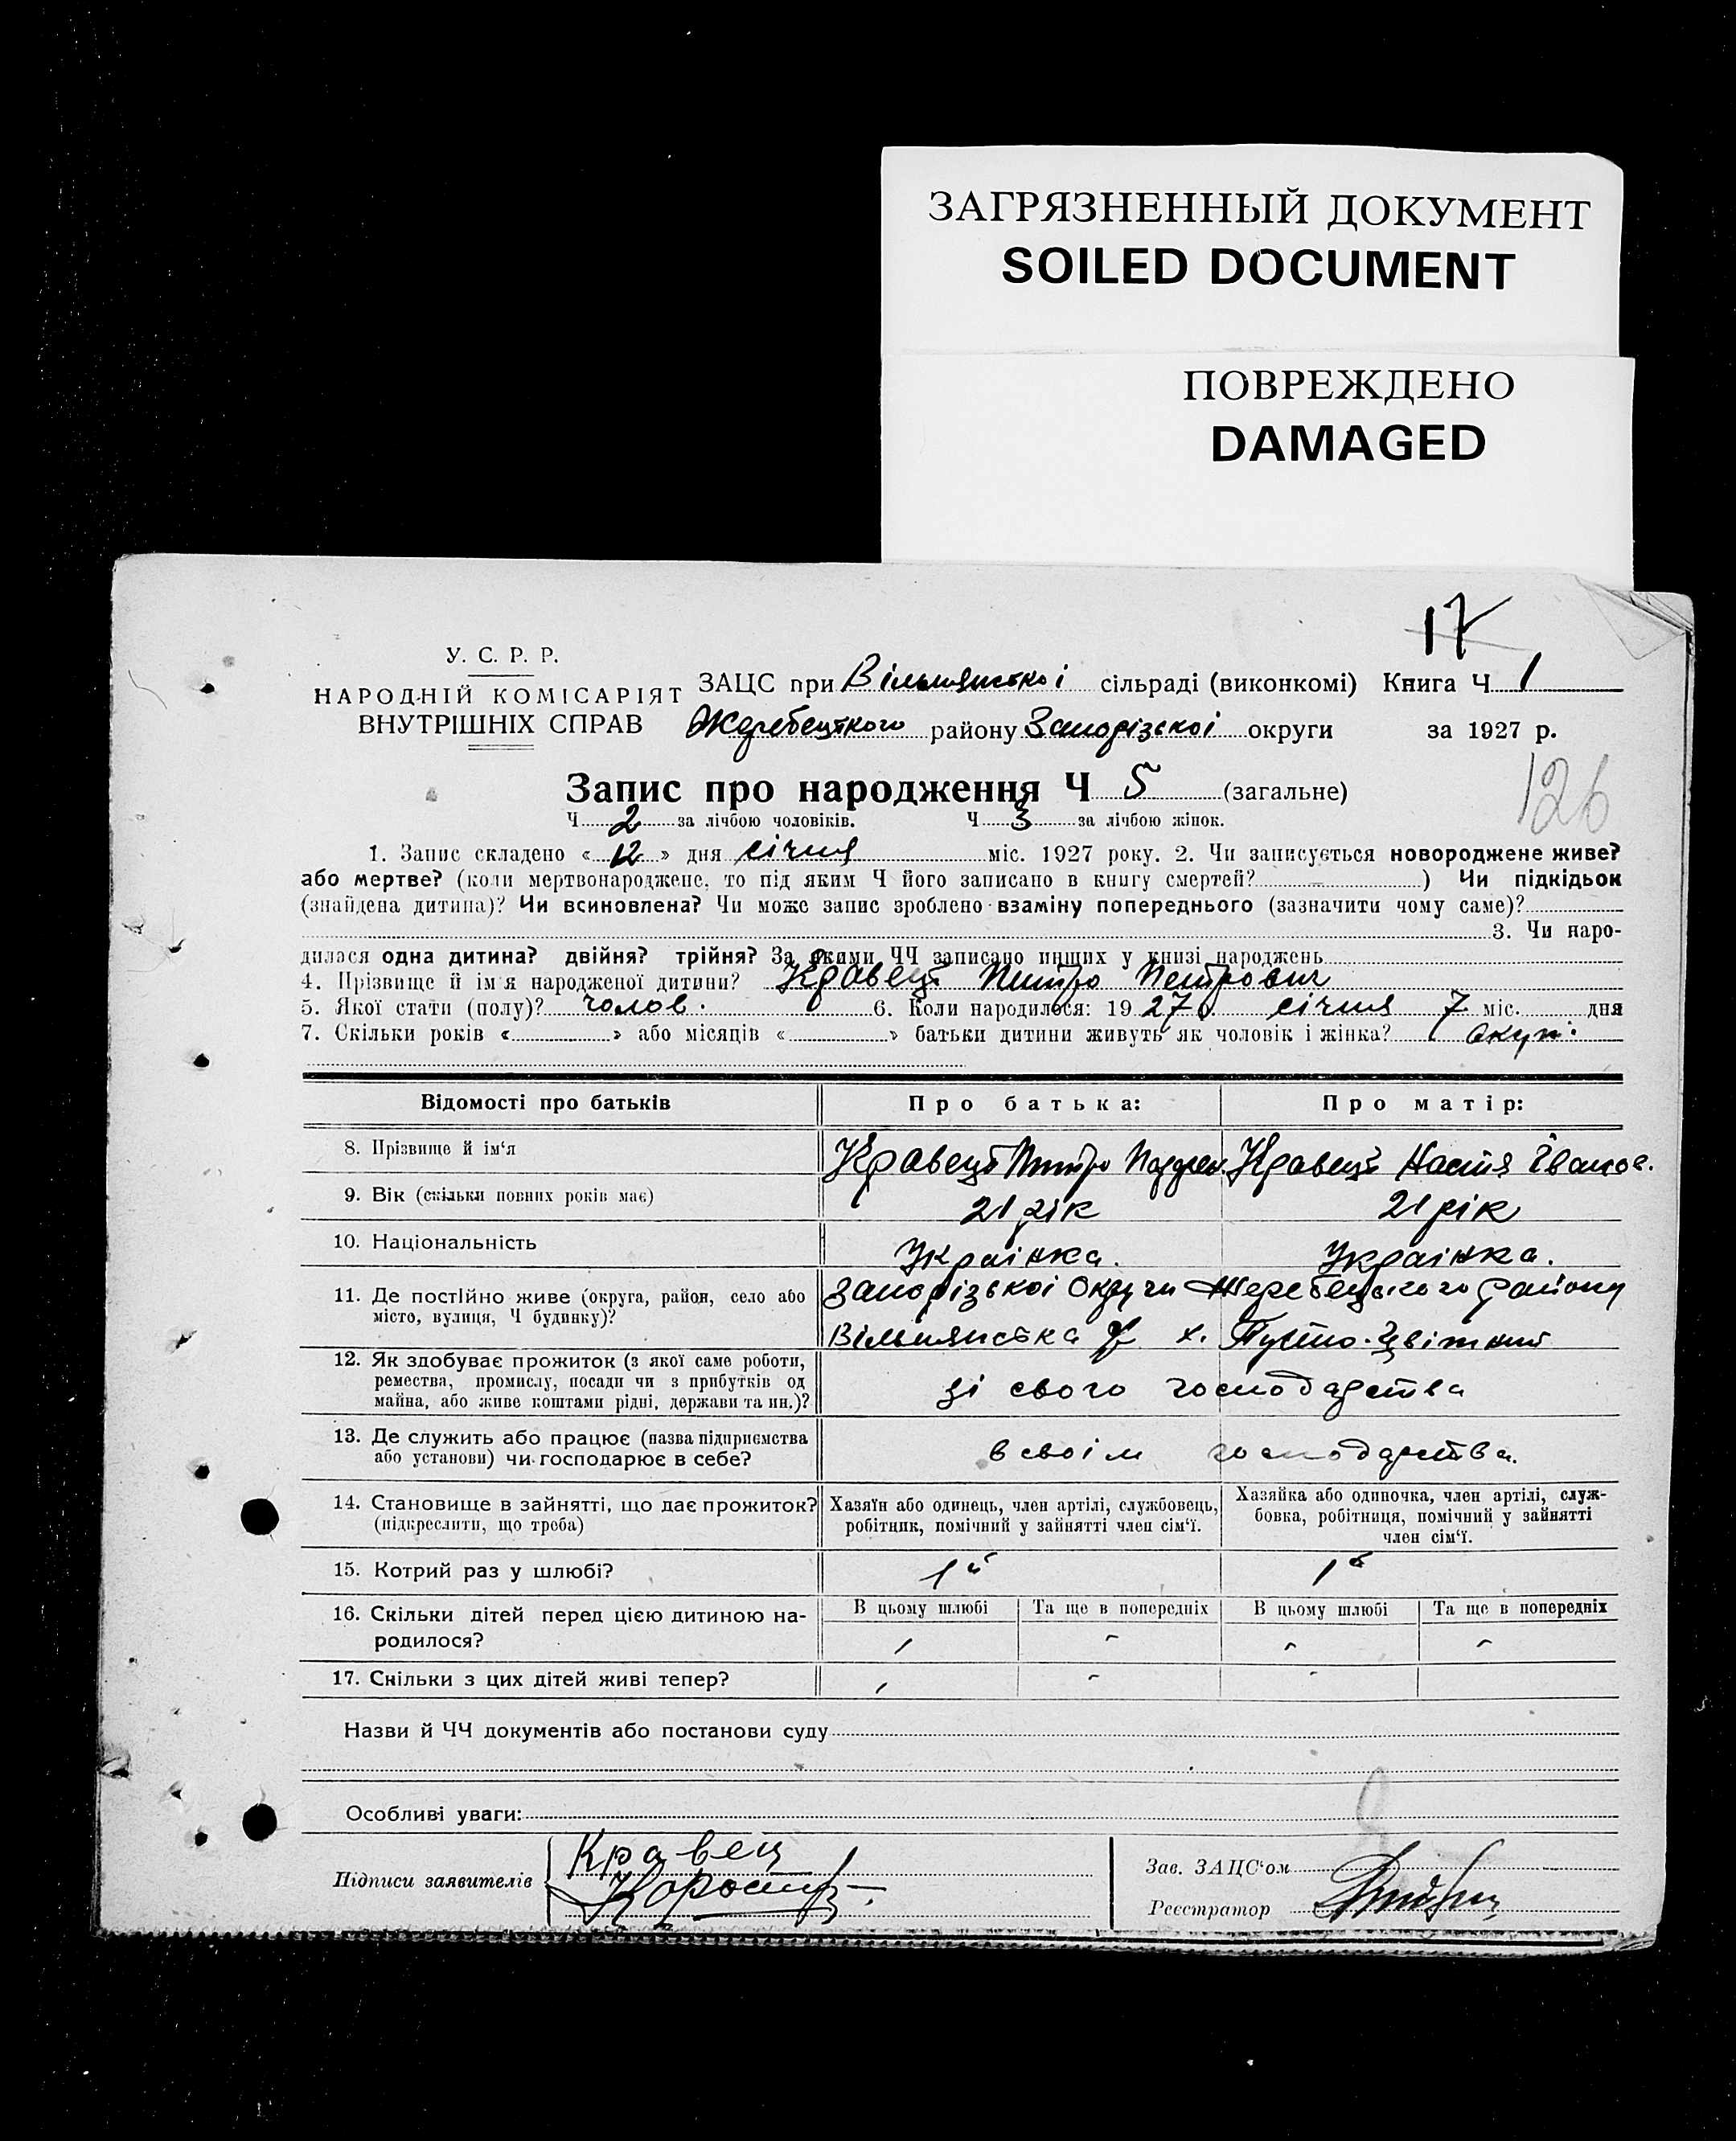 ЗАГРЯЗНЕННЫЙ ДОКУМЕНТ
SOILED DOCUMENT
ПОВРЕЖДЕНО
DAMAGED
17
У. С. Р. Р.
НАРОДНІЙ КОМІСАРІЯТ
ВНУТРІШНІХ СПРАВ
ЗАЦС при Вільнянської сільраді (виконкомі) Книга Ч 1
Жеребецького району Запорізскоі округи за 1927 р.
126
Запис про народження Ч 5 (загальне)
Ч 2 за лічбою чоловіків. Ч 3 за лічбою жінок.
1. Запис складено « 12 » дня січня міс. 1927 року. 2. Чи записується новороджене живе?
або мертве? (коли мертвонароджене, то під яким Ч його записано в книгу смертей? ) Чи підкідьок
(знайдена дитина)? Чи всиновлена? Чи може запис зроблено взаміну попереднього (зазначити чому саме)?
3. Чи наро-
дилася одна дитина? двійня? трійня? За якими ЧЧ записано инших у книзі народжень
4. Прізвище й ім'я народженої дитини? Кравець Петро Петрович
5. Якої стати (полу)? чолов. 6. Коли народилося: 1927 січня 7 міс. дня
7. Скільки років « » або місяців « » батьки дитини живуть як чоловік і жінка?
Відомості про батьків Про батька: Про матір:
8. Прізвище й ім'я Кравець Петро Кравець Настя Іванов.
9. Вік (скільки повних років має) 21 рік 21 рік
10. Національність Украінка. Украінка.
11. Де постійно живе (округа, район, село або Запорізькоі Округи Жеребецького району
місто, вулиця, Ч будинку)? Вільнянська х. Пусто-Цвітний
12. Як здобуває прожиток (з якої саме роботи,
ремества, промислу, посади чи з прибутків од зі свого господарства
майна, або живе коштами рідні, держави та ин.)?
13. Де служить або працює (назва підприємства в своім господарства.
або установи) чи господарює в себе?
14. Становище в зайнятті, що дає прожиток? Хазяїн або одинець, член артілі, службовець, Хазяйка або одиночка, член артілі, служ-
(підкреслити, що треба) робітник, помічний у зайнятті член сім'ї. бовка, робітниця, помічний у зайнятті
член сім'ї.
15. Котрий раз у шлюбі? 1й 1й
16. Скільки дітей перед цією дитиною на- В цьому шлюбі Та ще в попередніх В цьому шлюбі Та ще в попередніх
родилося?
17. Скільки з цих дітей живі тепер?
Назви й ЧЧ документів або постанови суду
Особливі уваги:
Кравец
Підписи заявителів
Зав. ЗАЦС'ом
Реєстратор